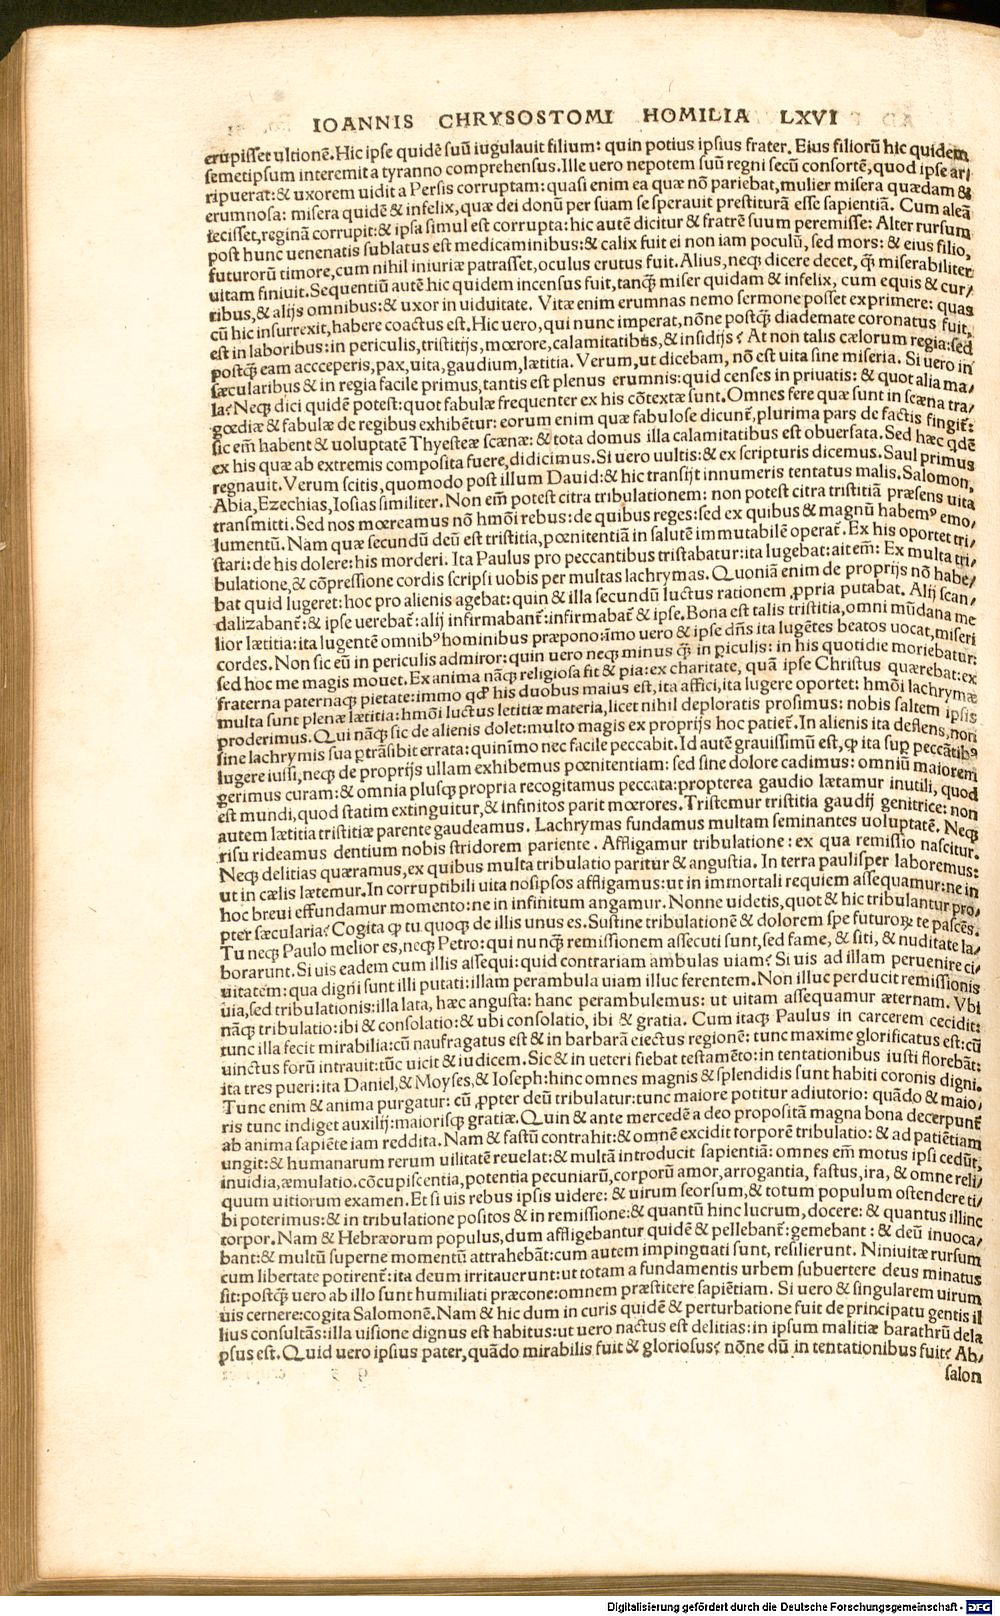 IOANNIS CHRYSOSTOMI HOMILIA LXVI
erupisset ultionē. Hic ipse quidē suū iugulauit filium: quin potius ipsius frater. Eius filiorū hic quidem
semetipsum interemit a tyranno comprehensus. Ille uero nepotem suū regni secū consortē, quod ipse ar/
ripuerat: & uxorem uidit a Persis corruptam: quasi enim ea quæ nō pariebat, mulier misera quædam &
erumnosa: misera quidē & infelix, quæ dei donū per suam se sperauit prestiturā esse sapientiā. Cum aleā
iecisset, reginā corrupit: & ipsa simul est corrupta: hic autē dicitur & fratrē suum peremisse: Alter rursum
post hunc uenenatis sublatus est medicaminibus: & calix fuit ei non iam poculū, sed mors: & eius filio,
futurorū timore, cum nihil iniuriæ patrasset, oculus erutus fuit. Alius, neq; dicere decet, q̄ miserabiliter
uitam finiuit. Sequentiū autē hic quidem incensus fuit, tanq̄ miser quidam & infelix, cum equis & cur/
ribus, & alijs omnibus: & uxor in uiduitate. Vitæ enim erumnas nemo sermone posset exprimere: quas
cū hic insurrexit, habere coactus est. Hic uero, qui nunc imperat, nōne postq̄ diademate coronatus fuit,
est in laboribus: in periculis, tristitijs, mœrore, calamitatibus, & insidijs? At non talis cælorum regia: sed
postq̄ eam accceperis, pax, uita, gaudium, lætitia. Verum, ut dicebam, nō est uita sine miseria. Si uero in
sæcularibus & in regia facile primus, tantis est plenus erumnis: quid censes in priuatis: & quot alia ma/
la? Neq; dici quidē potest: quot fabulæ frequenter ex his cōtextæ sunt. Omnes fere quæ sunt in scæna tra/
gœdiæ & fabulæ de regibus exhibētur: eorum enim quæ fabulose dicunt̄, plurima pars de factis fingit̄:
sic em̄ habent & uoluptatē Thyesteæ scænæ: & tota domus illa calamitatibus est obuersata. Sed hæc qdē
ex his quæ ab extremis composita fuere, didicimus. Si uero uultis: & ex scripturis dicemus. Saul primus
regnauit. Verum scitis, quomodo post illum Dauid: & hic transijt innumeris tentatus malis. Salomon,
Abia, Ezechias, Iosias similiter. Non em̄ potest citra tribulationem: non potest citra tristitiā præsens uita
transmitti. Sed nos mœreamus nō hmōi rebus: de quibus reges: sed ex quibus & magnū habemꝰ emo/
lumentū. Nam quæ secundū deū est tristitia, pœnitentiā in salutē immutabilē operat̄. Ex his oportet tri/
stari: de his dolere: his morderi. Ita Paulus pro peccantibus tristabatur: ita lugebat: ait em̄: Ex multa tri/
bulatione, & cōpressione cordis scripsi uobis per multas lachrymas. Quoniā enim de proprijs nō habe/
bat quid lugeret: hoc pro alienis agebat: quin & illa secundū luctus rationem ꝓpria putabat. Alij scan/
dalizabant̄: & ipse uerebat̄: alij infirmabant̄: infirmabat̄ & ipse. Bona est talis tristitia, omni mūdana me
lior lætitia: ita lugentē omnibꝰ hominibus præpono: imo uero & ipse dn̄s ita lugētes beatos uocat, miseri
cordes. Non sic eū in periculis admiror: quin uero neq; minus q̄ in ꝑiculis: in his quotidie moriebatur:
sed hoc me magis mouet. Ex anima nāq; religiosa fit & pia: ex charitate, quā ipse Christus quærebat: ex
fraterna paternaq; pietate: immo qđ his duobus maius est, ita affici, ita lugere oportet: hmōi lachrymæ
multa sunt plenæ lætitia: hmōi luctus letitiæ materia, licet nihil deploratis prosimus: nobis saltem ipsis
proderimus. Qui nāq; sic de alienis dolet: multo magis ex proprijs hoc patiet̄. In alienis ita deflens, non
sine lachrymis sua ꝑtrāsibit errata: quinimo nec facile peccabit. Id autē grauissimū est, ꝙ ita suꝑ peccātibꝰ
lugere iussi, neq; de proprijs ullam exhibemus pœnitentiam: sed sine dolore cadimus: omniū maiorem
gerimus curam: & omnia plusq; propria recogitamus peccata: propterea gaudio lætamur inutili, quod
est mundi, quod statim extinguitur, & infinitos parit mœrores. Tristemur tristitia gaudij genitrice: non
autem lætitia tristitiæ parente gaudeamus. Lachrymas fundamus multam seminantes uoluptatē. Neq;
risu rideamus dentium nobis stridorem pariente. Affligamur tribulatione: ex qua remissio nascitur.
Neq; delitias quæramus, ex quibus multa tribulatio paritur & angustia. In terra paulisper laboremus:
ut in cælis lætemur. In corruptibili uita nosipsos affligamus: ut in immortali requiem assequamur: ne in
hoc breui effundamur momento: ne in infinitum angamur. Nonne uidetis, quot & hic tribulantur pro/
pter sæcularia? Cogita ꝙ tu quoq; de illis unus es. Sustine tribulationē & dolorem spe futuroꝝ te pascēs.
Tu neq; Paulo melior es, neq; Petro: qui nunq̄ remissionem assecuti sunt, sed fame, & siti, & nuditate la/
borarunt. Si uis eadem cum illis assequi: quid contrariam ambulas uiam? Si uis ad illam peruenire ci/
uitatem: qua digni sunt illi putati: illam perambula uiam illuc ferentem. Non illuc perducit remissionis
uia, sed tribulationis: illa lata, hæc angusta: hanc perambulemus: ut uitam assequamur æternam. Vbi
nāq; tribulatio: ibi & consolatio: & ubi consolatio, ibi & gratia. Cum itaq; Paulus in carcerem cecidit:
tunc illa fecit mirabilia: cū naufragatus est & in barbarā eiectus regionē: tunc maxime glorificatus est: cū
uinctus forū intrauit: tūc uicit & iudicem. Sic & in ueteri fiebat testamēto: in tentationibus iusti florebāt:
ita tres pueri: ita Daniel, & Moyses, & Ioseph: hinc omnes magnis & splendidis sunt habiti coronis digni.
Tunc enim & anima purgatur: cū ꝓpter deū tribulatur: tunc maiore potitur adiutorio: quādo & maio/
ris tunc indiget auxilij: maiorisq; gratiæ. Quin & ante mercedē a deo propositā magna bona decerpunt̄
ab anima sapiēte iam reddita. Nam & fastū contrahit: & omnē excidit torporē tribulatio: & ad patiētiam
ungit: & humanarum rerum uilitatē reuelat: & multā introducit sapientiā: omnes em̄ motus ipsi cedūt,
inuidia, æmulatio. cōcupiscentia, potentia pecuniarū, corporū amor, arrogantia, fastus, ira, & omne reli/
quum uitiorum examen. Et si uis rebus ipsis uidere: & uirum seorsum, & totum populum ostendere ti/
bi poterimus: & in tribulatione positos & in remissione: & quantū hinc lucrum, docere: & quantus illinc
torpor. Nam & Hebræorum populus, dum affligebantur quidē & pellebant̄: gemebant: & deū inuoca/
bant: & multū superne momentū attrahebāt: cum autem impinguati sunt, resilierunt. Niniuitæ rursum
cum libertate potirent̄: ita deum irritauerunt: ut totam a fundamentis urbem subuertere deus minatus
sit: postq̄ uero ab illo sunt humiliati præcone: omnem præstitere sapiētiam. Si uero & singularem uirum
uis cernere: cogita Salomonē. Nam & hic dum in curis quidē & perturbatione fuit de principatu gentis il
lius consultās: illa uisione dignus est habitus: ut uero nactus est delitias: in ipsum malitiæ barathrū dela
psus est. Quid uero ipsius pater, quādo mirabilis fuit & gloriosus? nōne dū in tentationibus fuit? Ab/
salon
Digitalisierung gefördert durch die Deutsche Forschungsgemeinschaft - DFG